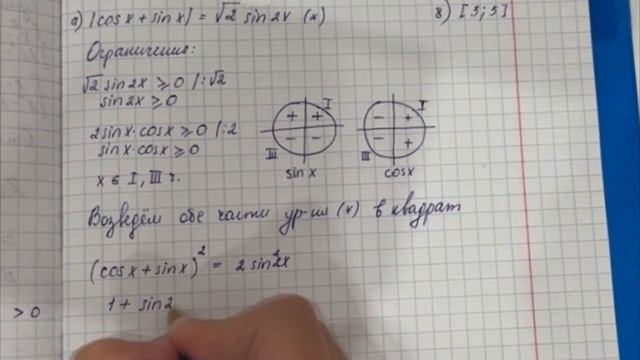 а) |cos x + sin x| = √2 sin 2x (*)
в) [3; 5]
Ограничения:
√2 sin 2x ⩾ 0 |:√2
sin 2x ⩾ 0
2 sin x · cos x ⩾ 0 |:2
sin x · cos x ⩾ 0
x ∈ I, III ч.
+ + I
III − −
sin x
− + I
III − +
cos x
Возведём обе части ур-ия (*) в квадрат
(cos x + sin x)² = 2 sin² 2x
1 + sin 2
> 0